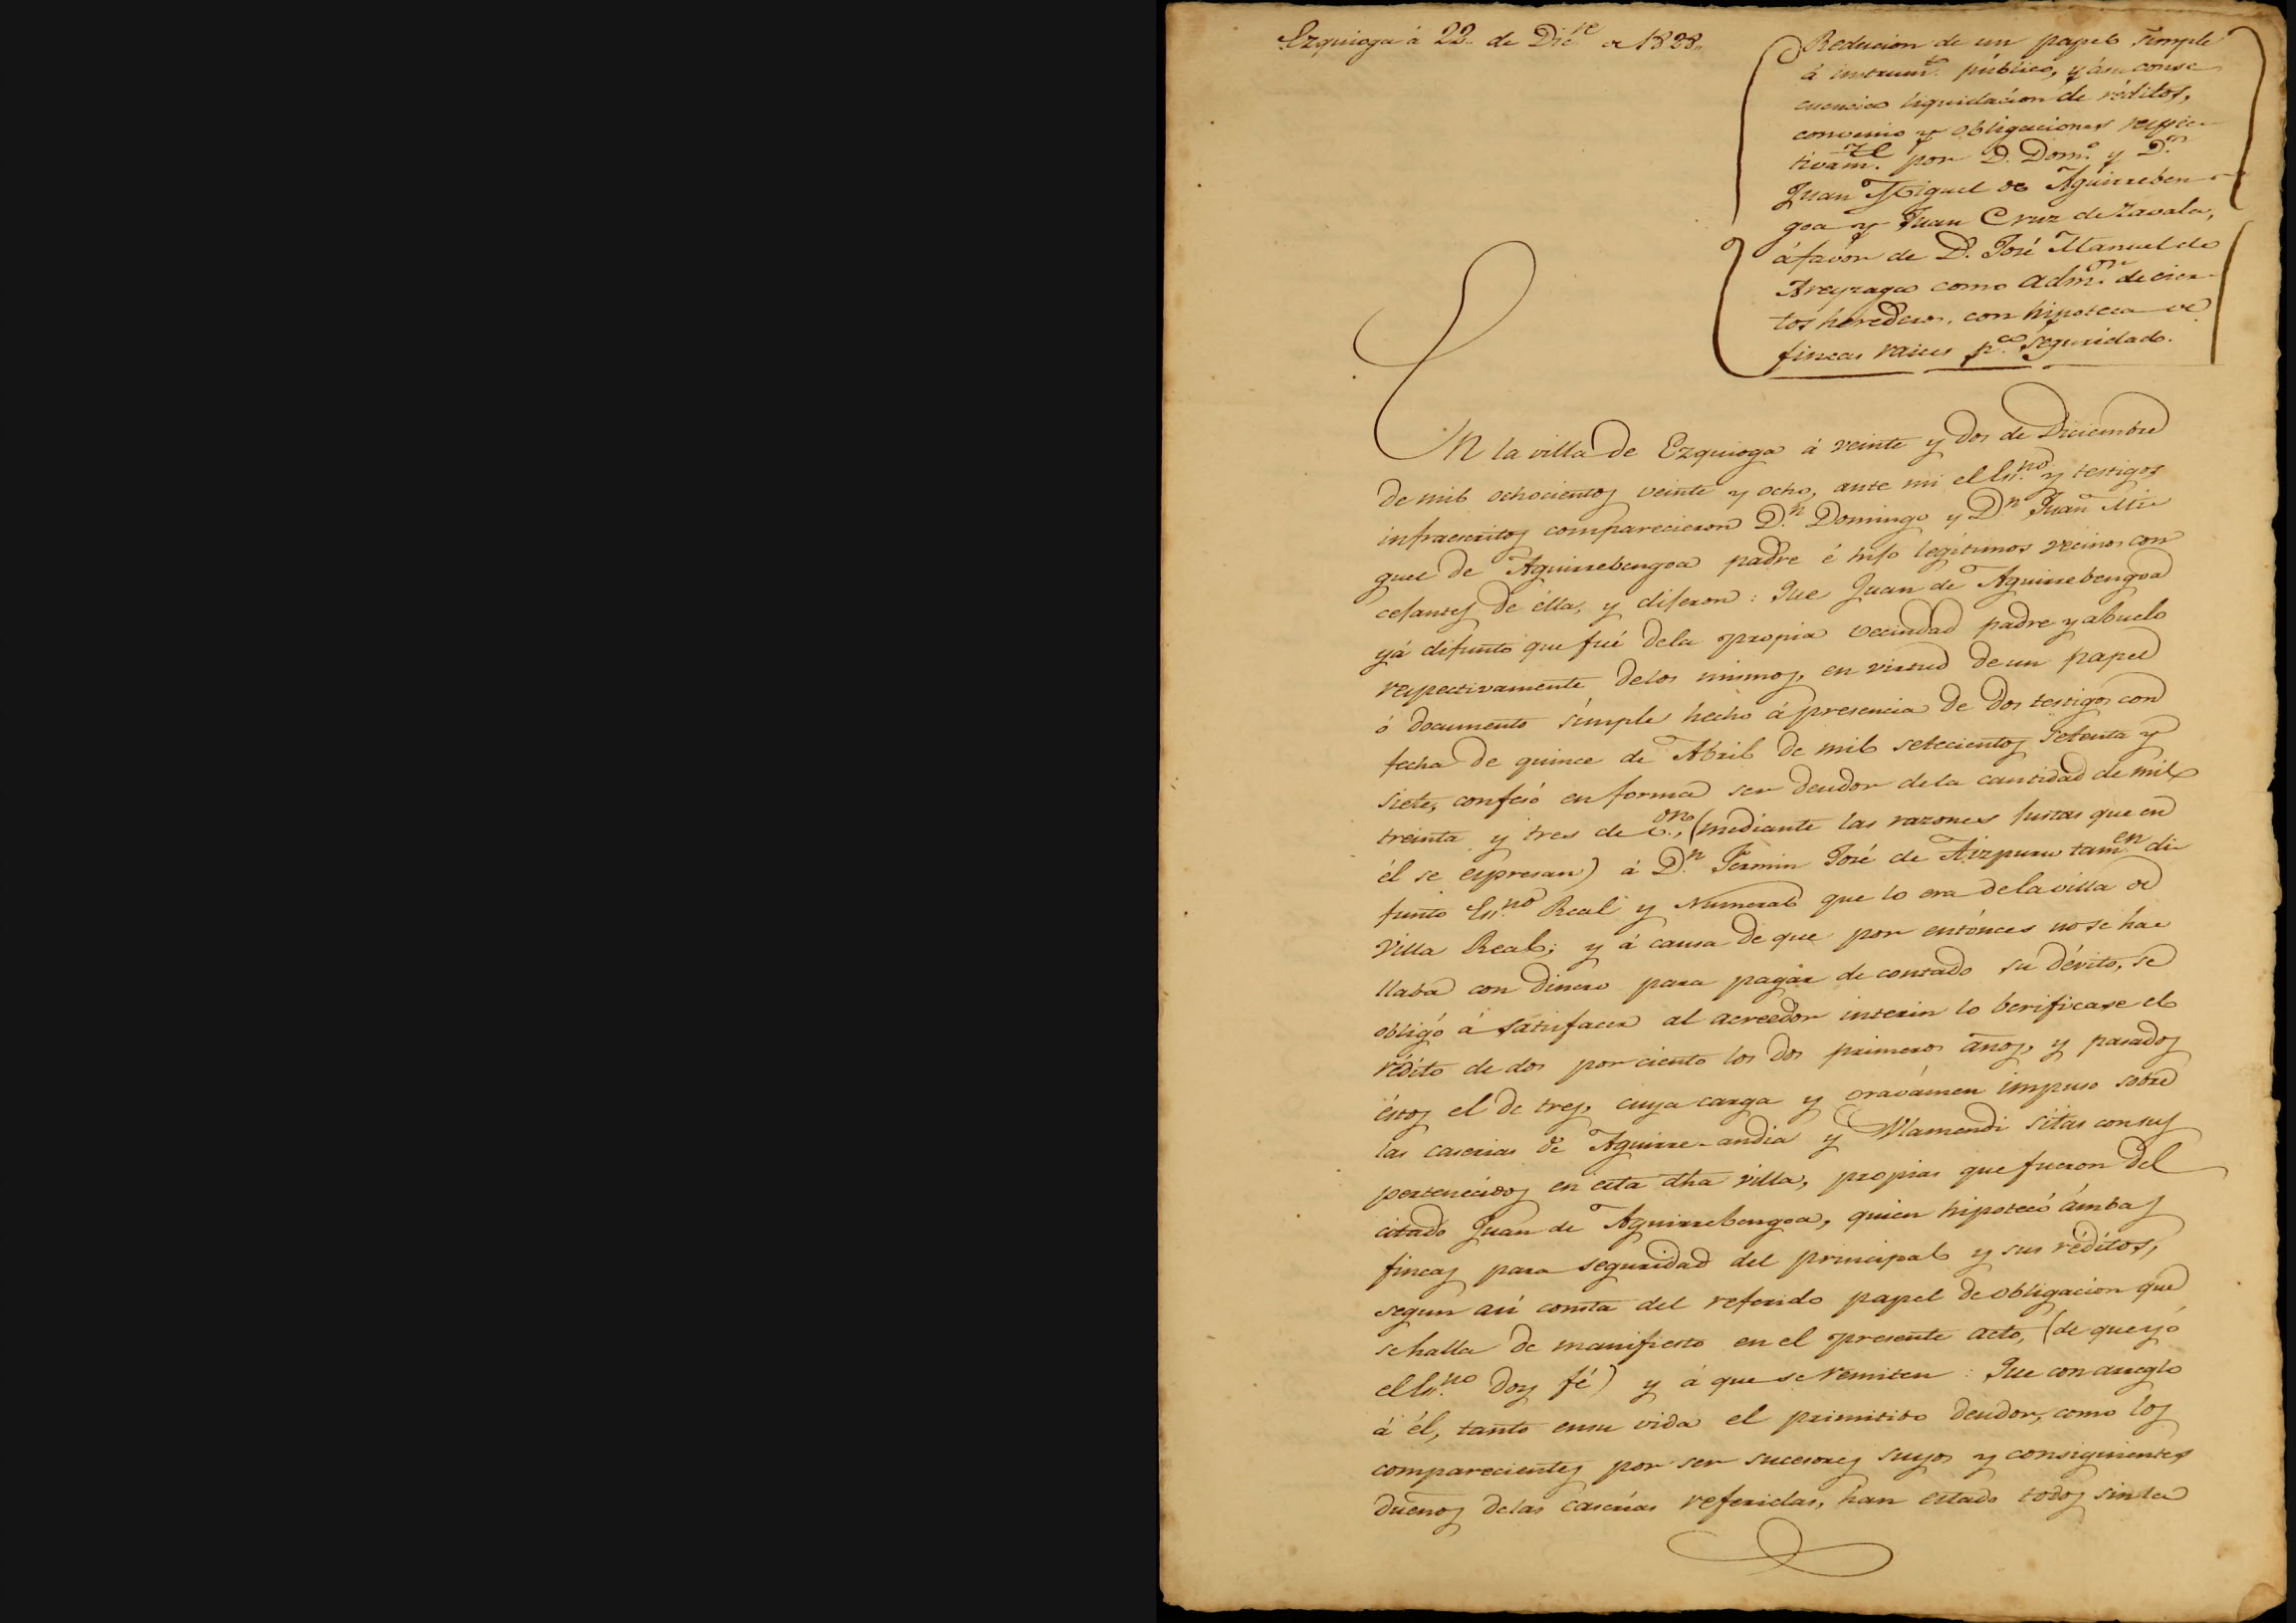 Ezquioga á 22. de Dicre de 1828.
Reducion de un papel simple
á instrumto. público, y á su conse
cuencia liquidacion de réditos,
convenio y obligaciones respec-
tivamte. por D. Domo. y Dn.
Juan Miguel de Aguirreben-
goa y Juan Cruz de Zavala,
á favor de D. José Manuel de
Areyzaga como Admor. de cier-
tos herederos, con hipoteca de
fincas raices pa. seguridad.
EN la villa de Ezquioga á veinte y dos de Diciembre
de mil ochocientos veinte y ocho, ante mi el Esno. y testigos
infraescritos comparecieron Dn. Domingo y Dn. Juan Mi
guel de Aguirrebengoa padre é hijo legítimos vecinos con
cejantes de élla, y dijeron: Que Juan de Aguirrebengoa
yá difunto que fué dela propia vecindad padre y abuelo
respectivamente delos mismos, en virtud de un papel
ó documento simple hecho á presencia de dos testigos con
fecha de quince de Abril de mil setecientos setenta y
siete, confesó en forma ser deudor dela cantidad de mil
treinta y tres de von., (mediante las razones justas que en
él se espresan) á Dn. Fermin José de Aizpuru tamen. di-
funto Esno. Real y Numeral que lo era dela villa de
Villa Real; y á causa de que por entónces no se ha
llaba con dinero para pagar de contado su dévito, se
obligó á satisfacer al acreedor interin lo berificase el
rédito de dos por ciento los dos primeros años, y pasados
éstos el de tres, cuya carga y gravámen impuso sobre
las caserias de Aguirre-andia y Ulamendi sitas con sus
pertenecidos en esta dha villa, propias que fueron del
citado Juan de Aguirrebengoa, quien hipotecó ámbas
fincas para seguridad del principal y sus réditos,
segun asi consta del referido papel de obligacion que
se halla de manifiesto en el presente acto, (de que yó
el Esno. doy fé) y á que se remiten: Que con arreglo
á él, tanto en su vida el primitivo deudor, como los
comparecientes por ser sucesores suyos y consiguientes
dueños delas caserias referidas, han estado todos sin la